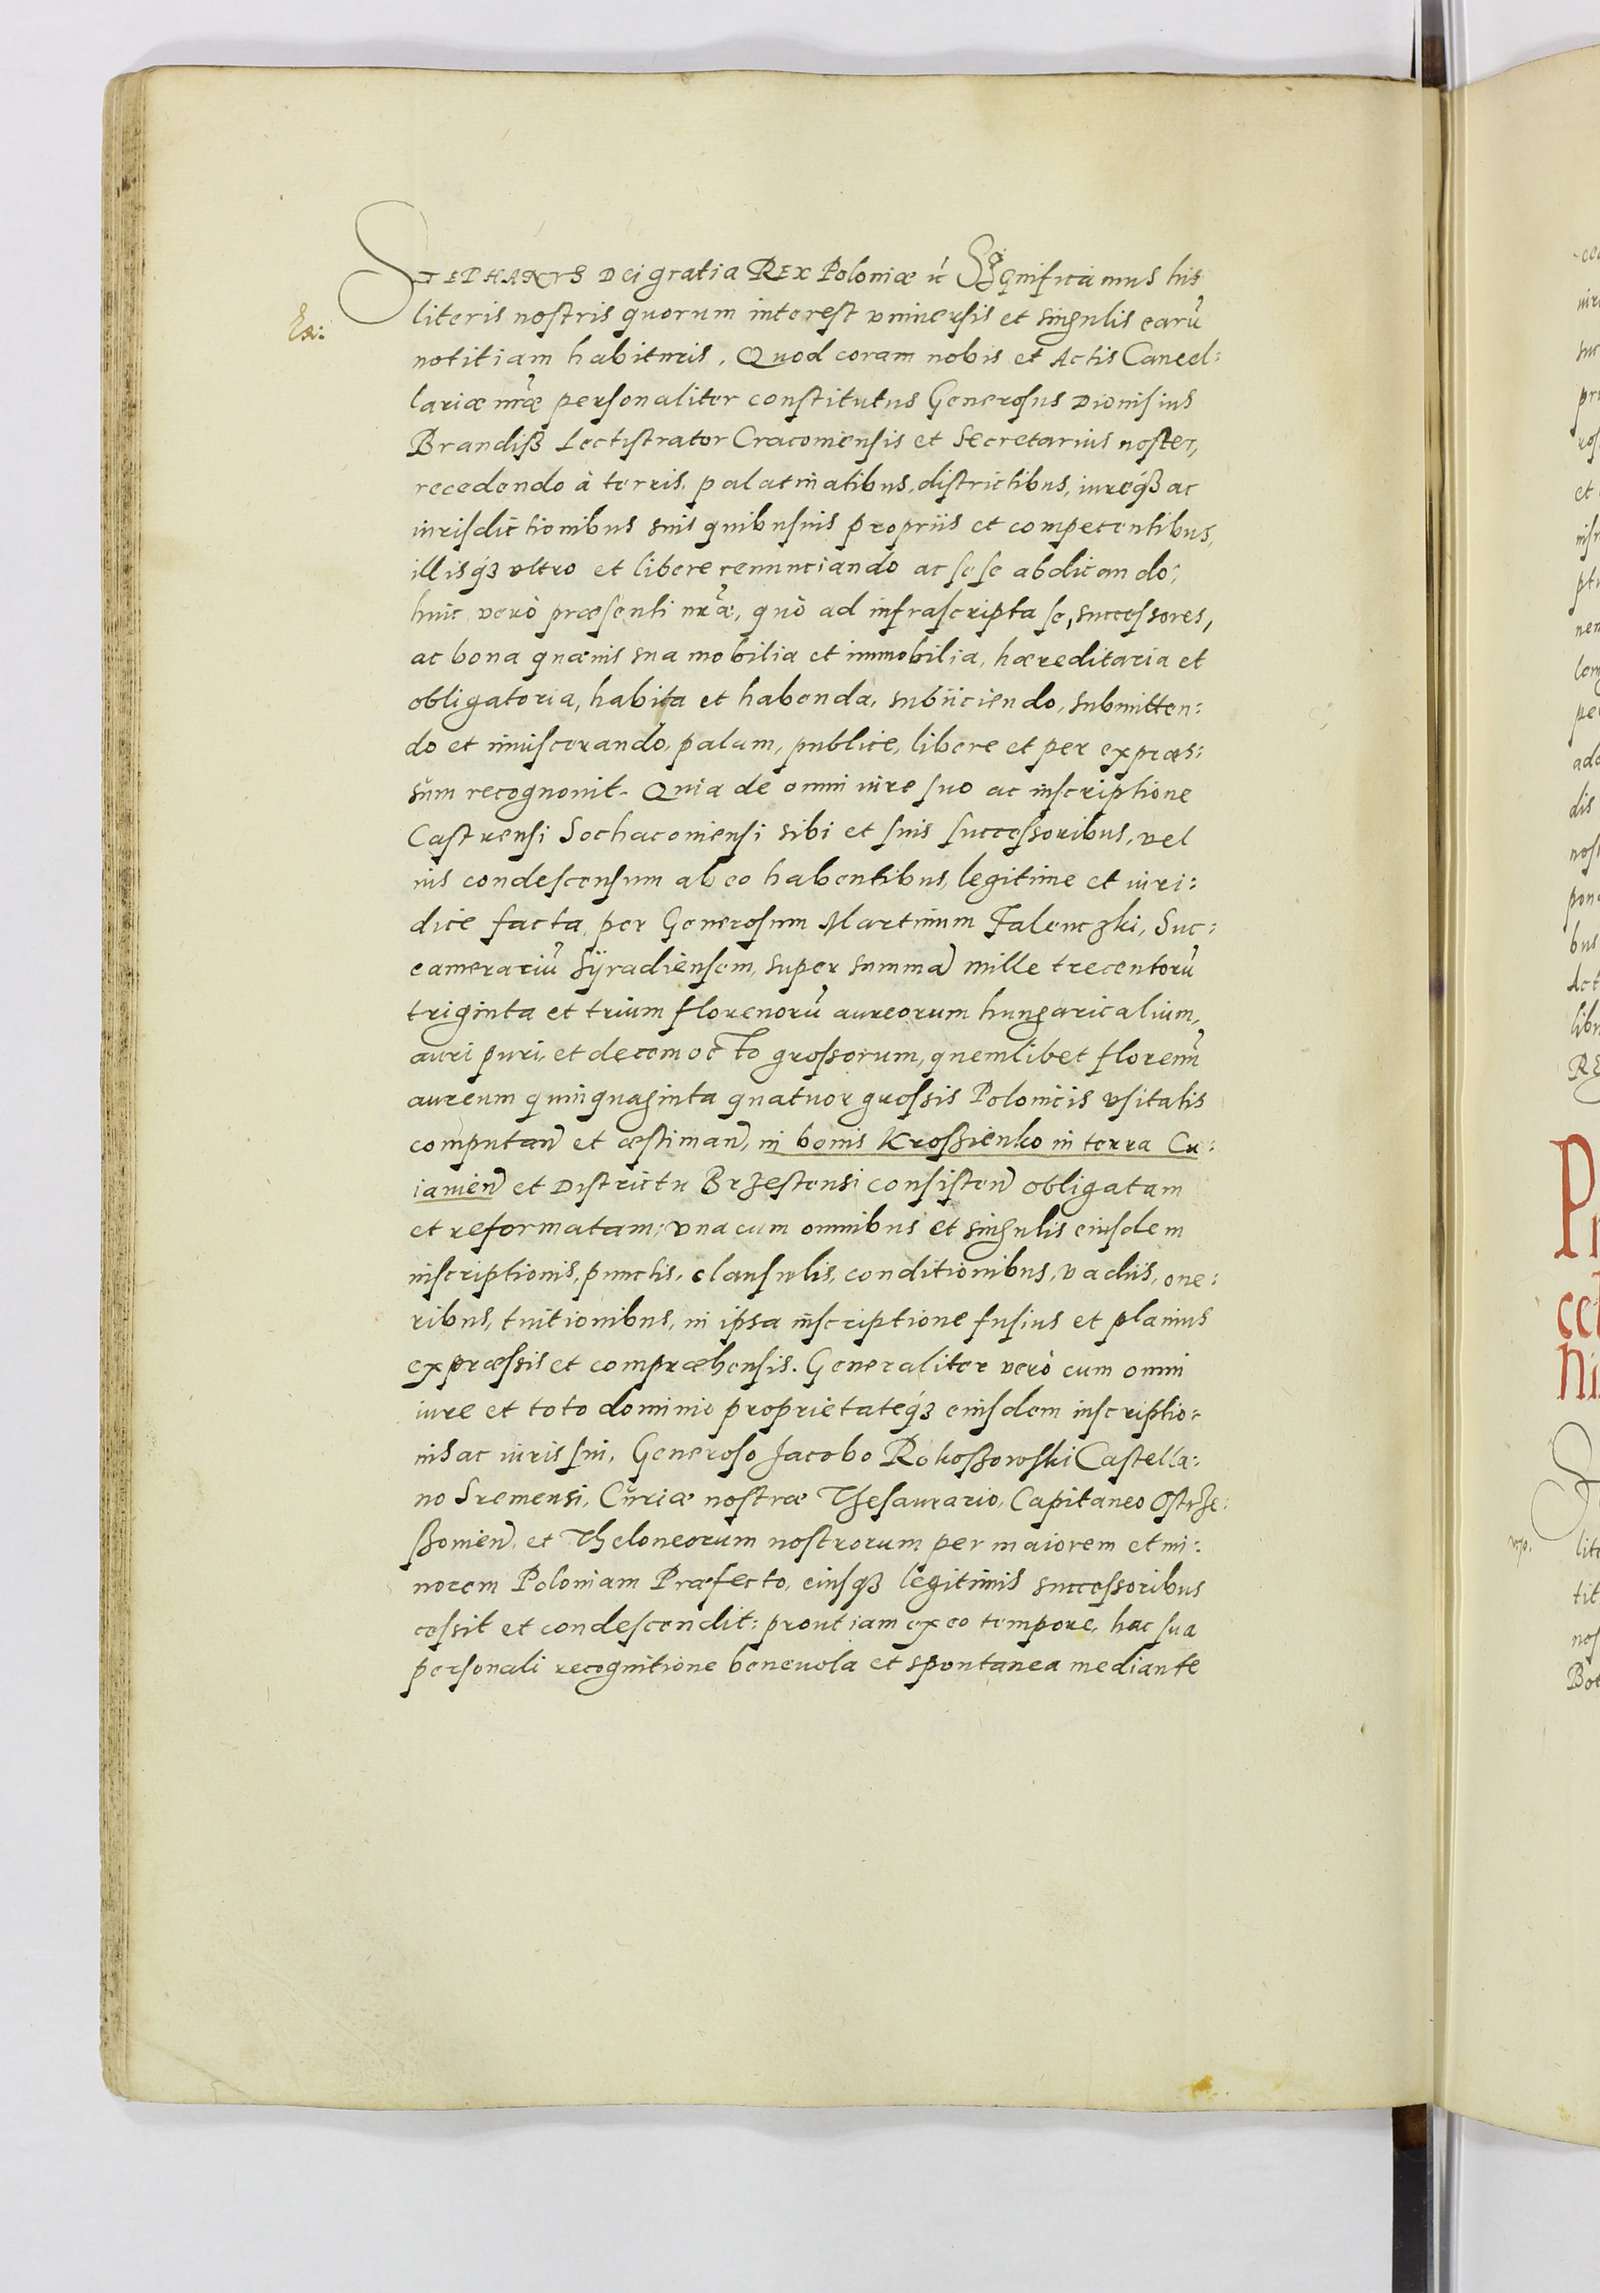 STEPHANVS Dei gratia REX Poloniæ ιč Significamus his
Ex:
literis nostris quorum interest vniuersis et singulis earū
notitiam habituris. Quod coram nobis et Actis Cancel:
lariæ nr̃æ personaliter constitutus Generosus Dionisius
Brandiß Lectistrator Cracouiensis et Secretarius noster,
recedendo à terris, palatinatibus, districtibus, iureq́ȝ ac
iurisdictionibus suis quibusuis propriis et competentibus,
illisq́ȝ vltro et libere renunciando ac sese abdicando;
huic verò præsenti nr̃æ, quò ad infrascripta se, successores,
ac bona quæuis sua mobilia et immobilia, hæreditaria et
obligatoria, habita et habenda, subiiciendo, submitten:
do et inuiscerando, palam, publice, libere et per expræs:
sum recognouit. Quia de omni iure suo ac inscriptione
Castrensi Sochaceuiensi sibi et suis successoribus, vel
ius condescensum ab eo habentibus, legitime et iuri:
dice facta, per Generosum Martinum Falenczki, Suc:
camerariū Sÿradiensem, super summā mille trecentorū
triginta et trium florenorū aureorum hungaricalium,
auri puri, et decem octo grossorum, quemlibet florenū
aureum quinquaginta quatuor grossis Polonicis vsitatis
computan̄ et æstiman̄, in bonis Kroszienko in terra Cu:
iauien̄ et Districtu Brzestensi consisten̄ obligatam
et reformatam; vna cum omnibus et singulis eiusdem
inscriptionis, punctis, clausulis, conditionibus, vadiis, one:
ribus, tuitionibus, in ipsa inscriptione fusius et planius
expræssis et compræhensis. Generaliter verò cum omni
iure et toto dominio proprietateq́ȝ eiusdem inscriptio:
nis ac iuris sui, Generoso Jacobo Rokoszowski Castella:
no Sremensi, Curiæ nostræ Thesaurario, Capitaneo Ostrze:
szouien̄, et Theloneorum nostrorum per maiorem et mi:
norem Poloniam Præfecto, eiusqȝ legitimis successoribus
cessit et condescendit: prout iam ex eo tempore, hac sua
personali recognitione beneuola et spontanea mediante